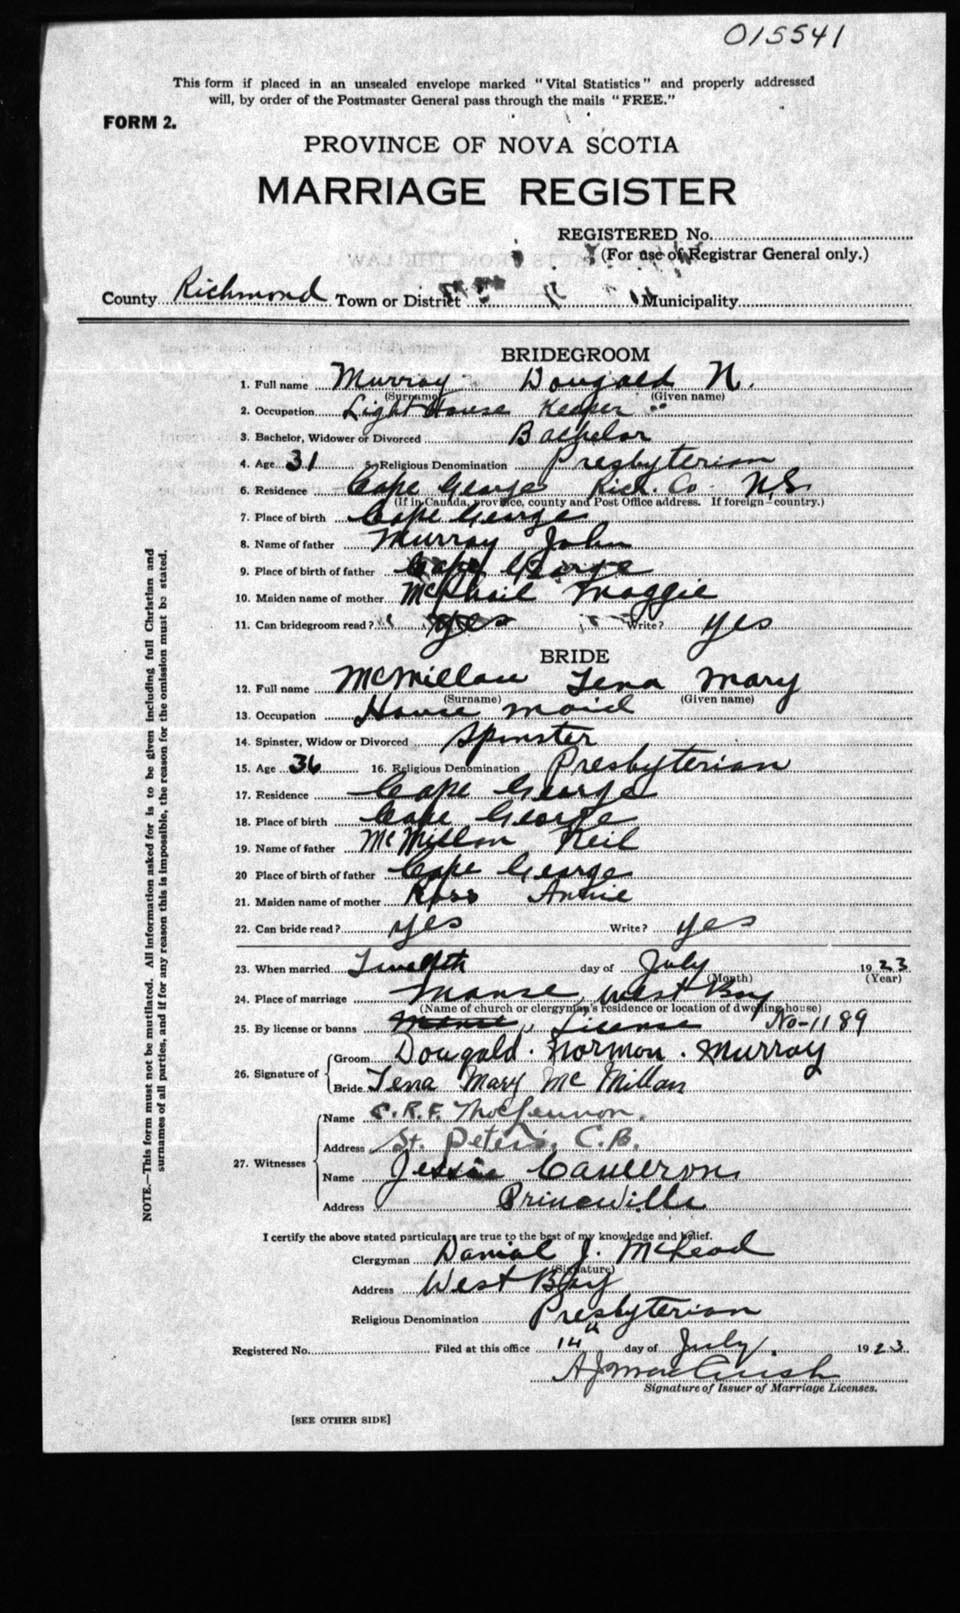 015541
This form if placed in an unsealed envelope marked "Vital Statistics" and properly addressed
will, by order of the Postmaster General pass through the mails "FREE."
FORM 2.
PROVINCE OF NOVA SCOTIA
MARRIAGE REGISTER
REGISTERED No.
(For use of Registrar General only.)
County Richmond Town or District Municipality
BRIDEGROOM
1. Full name Murray Dougald N.
(Surname) (Given name)
2. Occupation Light House Keeper
3. Bachelor, Widower or Divorced Bachelor
4. Age 31 5. Religious Denomination Presbyterian
6. Residence Cape George Rich. Co. N.S.
(If in Canada, province, county and Post Office address. If foreign—country.)
7. Place of birth Cape George
8. Name of father Murray John
9. Place of birth of father Cape George
10. Maiden name of mother McPhail Maggie
11. Can bridegroom read? yes Write? yes
BRIDE
12. Full name McMillan Tena Mary
(Surname) (Given name)
13. Occupation House maid
14. Spinster, Widow or Divorced Spinster
15. Age 36 16. Religious Denomination Presbyterian
17. Residence Cape George
18. Place of birth Cape George
19. Name of father McMillan Neil
20 Place of birth of father Cape George
21. Maiden name of mother Ross Annie
22. Can bride read? yes Write? yes
23. When married Twelfth day of July 1923
(Month) (Year)
24. Place of marriage Manse, West Bay
(Name of church or clergyman's residence or location of dwelling house)
25. By license or banns Manse, License No-1189
26. Signature of Groom Dougald. Normon. Murray
Bride Tena Mary McMillan
27. Witnesses
Name C.R.F. MacLennon.
Address St. Peter's, C.B.
Name Jessie Cameron
Address Princeville
I certify the above stated particulars are true to the best of my knowledge and belief.
Clergyman Danial J. McLeod
(Signature)
Address West Bay
Religious Denomination Presbyterian
Registered No. Filed at this office 14" day of July. 1923
A J MacCuish
Signature of Issuer of Marriage Licenses.
[SEE OTHER SIDE]
NOTE.—This form must not be mutilated. All information asked for is to be given including full Christian and
surnames of all parties, and if for any reason this is impossible, the reason for the omission must be stated.